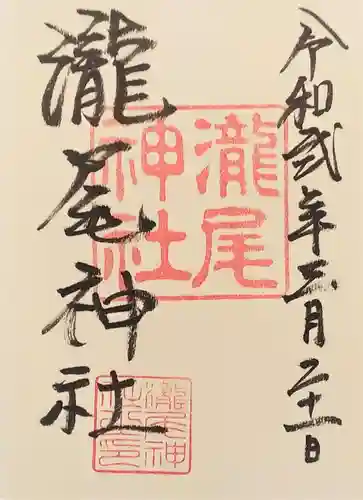 令和弐年二月二十一日
瀧尾神社
瀧尾
神社
瀧尾神
社之印